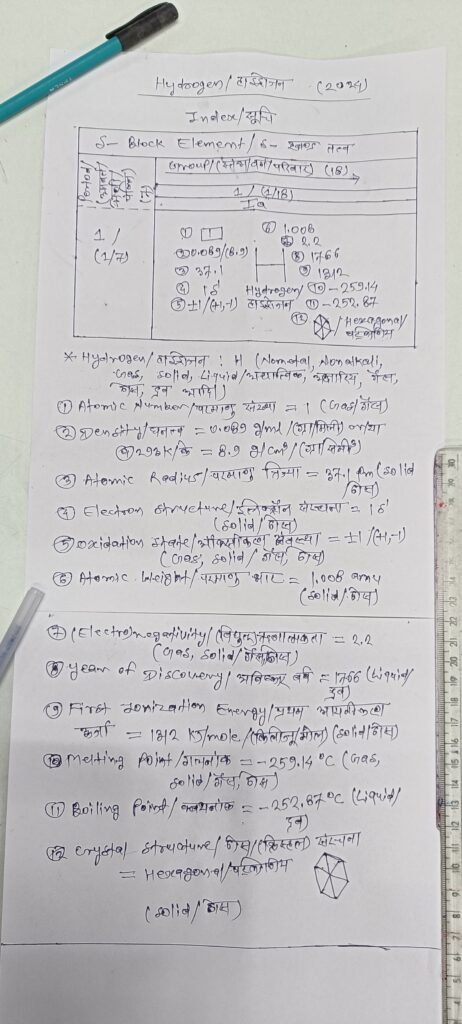 Hydrogen/हाइड्रोजन (2024)
Index/सूचि
S- Block Element/ S- ब्लाक तत्व
Group/(स्तंभ/वर्ग/परिवार) (18)
1/(1/18)
Ia
1/
(1/7)
① 1
② 0.089/(8.9)
③ 37.1
④ 1s¹
⑤ ±1/(+1,-1)
H
Hydrogen/
हाइड्रोजन
⑥ 1.008
⑦ 2.2
⑧ 1766
⑨ 1312
⑩ -259.14
⑪ -252.87
⑫ /Hexagonal/
* Hydrogen/हाइड्रोजन : H (Nometal, Nonalkali,
Gas, Solid, Liquid/
ठोस, द्रव आदि)
① Atomic Number/परमाणु संख्या = 1 (Gas/गैस)
② Density/घनत्व = 0.089 g/ml/
293K/के = 8.9 g/cm³/
③ Atomic Radius/परमाणु त्रिज्या = 37.1 Pm (Solid
ठोस)
④ Electron Structure/इलेक्ट्रॉन संरचना = 1s¹
(Solid/ठोस)
⑤ Oxidation State/ऑक्सीकरण अवस्था = ±1/(+1,-1)
(Gas, Solid/गैस, ठोस)
⑥ Atomic Weight/परमाणु भार = 1.008 amu
(Solid/ठोस)
⑦ (Electro)negativity/(विद्युत)ऋणात्मकता = 2.2
(Gas, Solid/गैस, ठोस)
⑧ Year of Discovery/आविष्कार वर्ष = 1766 (Liquid/
द्रव)
⑨ First Ionization Energy/प्रथम आयनीकरण
ऊर्जा = 1312 KJ/mole/(किलोजू/मोल) (Solid/ठोस)
⑩ Melting Point/गलनांक = -259.14°C (Gas,
Solid/गैस, ठोस)
⑪ Boiling Point/क्वथनांक = -252.87°C (Liquid/
द्रव)
⑫ Crystal Structure/ठोस/(क्रिस्टल) संरचना
= Hexagonal/षट्कोणिय
(Solid/ठोस)